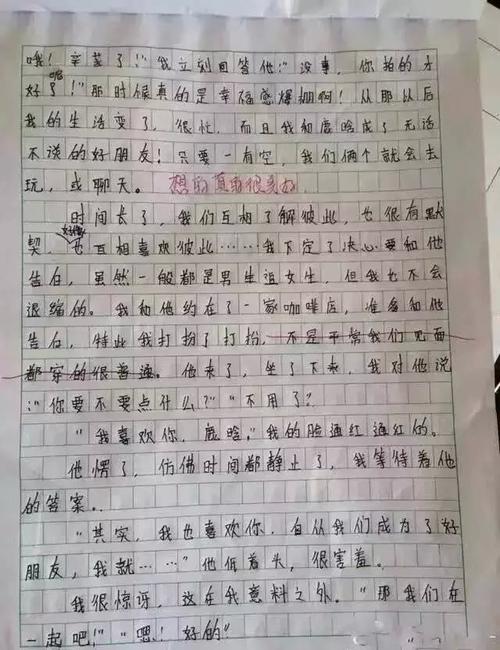 哦！辛苦了！"我立刻回答他："没事，你拍的才
呢
好了！"那时候真的是幸福感爆棚啊！从那以后
我的生活变了，很忙，而且我和鹿晗成了无话
不说的好朋友！只要一有空，我们俩个就会去
玩，或聊天。想的真的很美好
时间长了，我们互相了解彼此，也很有默
好像
契，也互相喜欢彼此……我下定了决心要和他
告白，虽然一般都是男生追女生，但我也不会
退缩的。我和他约在了一家咖啡店，准备和他
告白，特此我打扮了打扮，不是平常我们见面
都穿的很普通。他来了，坐了下来，我对他说
："你要不要点什么？""不用了？
"我喜欢你，鹿晗。"我的脸通红通红的。
他愣了，仿佛时间都静止了，我等待着他
的答案。
"其实，我也喜欢你，自从我们成为了好
朋友，我就……"他低着头，很害羞。
我很惊讶，这在我意料之外。"那我们在
一起吧！""嗯！好的"